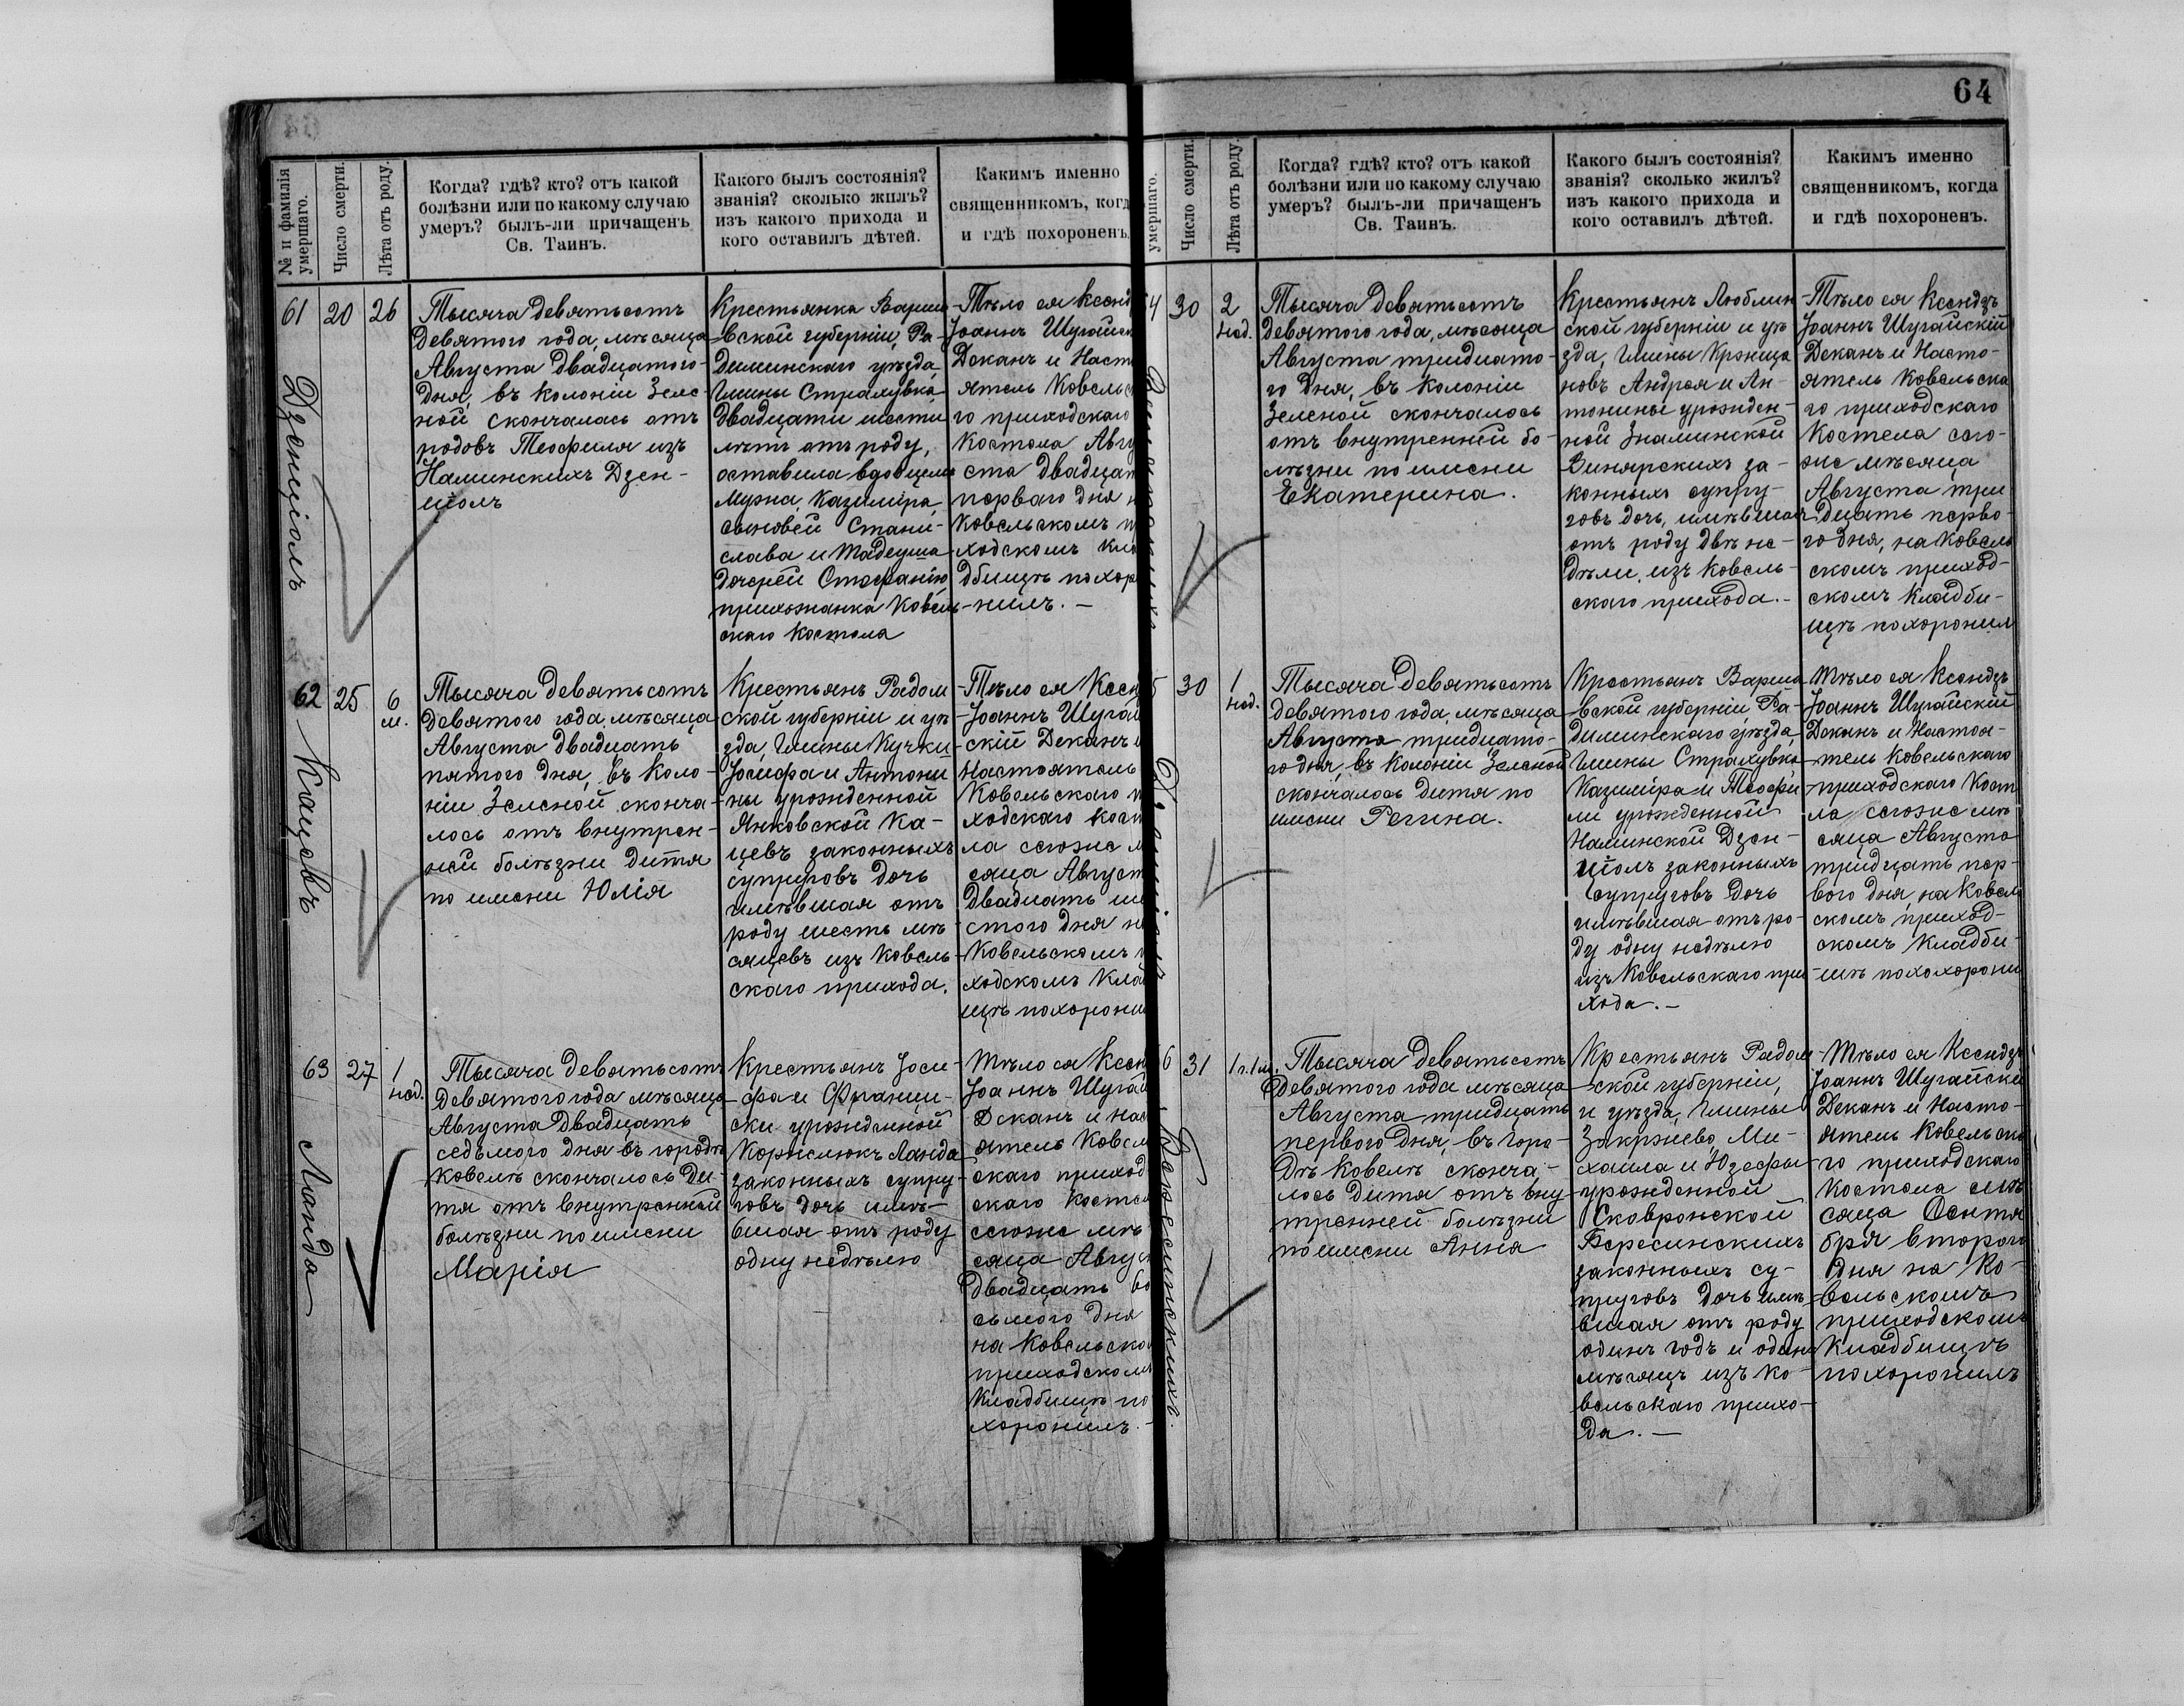 64
№ и фамилія
умершаго.
Число смерти.
Лѣта отъ роду.
Когда? гдѣ? кто? отъ какой
болѣзни или по какому случаю
умеръ? былъ-ли причащенъ
Св. Таинъ.
Какого былъ состоянія?
званія? сколько жилъ?
изъ какого прихода и
кого оставилъ дѣтей.
Какимъ именно
священникомъ, когд
и гдѣ похороненъ.
61
Дзенціолъ
20
26
Тысяча девятьсотъ
девятого года, мѣсяца
Августа двадцатого
дня, въ колоніи Зеле-
ной скончалась отъ
родовъ Теофиля изъ
Наминскихъ Дзен-
ціолъ
Крестьянка Варша-
вской губерніи, Ра-
диминскаго уѣзда,
гмины Страхувка,
двадцати шести
лѣтъ отъ роду,
оставила вдовцемъ
мужа, Казиміра,
сыновей Стани-
слава и Тадеуша
дочерей Стефанію,
прихожанка Ковель-
скаго костела
Тѣло ея Ксенд
Іоаннъ Шугайск
Деканъ и Наст
ятель Ковельс
го приходскаго
Костела Авгу
ста двадцат
перваго дня н
Ковельскомъ п
ходскомъ кла
дбищѣ похор
нилъ. —
62
Кацевъ
25
6
м.
Тысяча девятьсотъ
девятого года, мѣсяца
Августа двадцать
пятого дня, въ коло-
ніи Зеленой сконча-
лось отъ внутрен-
ней болѣзни дитя
по имени Юлія
Крестьянъ Радом
ской губерніи и уѣ
зда, гмины Кучки
Іосифа и Антони
ны урожденной
Янковской Ка-
цевъ законныхъ
супруговъ дочь
имѣвшая отъ
роду шесть мѣ
сяцевъ изъ Ковель
скаго прихода.
Тѣло ея Ксен
Іоаннъ Шугай
скій Деканъ и
Настоятель
Ковельскаго п
ходскаго кост
ла сегоже м
сяца Август
двадцать ше
стого дня н
Ковельскомъ п
ходскомъ клад
щѣ похорони
63
Ланда
27
1
нед.
Тысяча девятьсотъ
девятого года мѣсяца
Августа двадцать
седьмого дня въ городѣ
Ковелѣ скончалось ди-
тя отъ внутренней
болѣзни по имени
Марія
Крестьянъ Іоси-
фа и Францы-
ски урожденной
Корнелюкъ Ланда
законныхъ супру-
говъ дочь имѣ-
вшая отъ роду
одну недѣлю
Тѣло ея Ксен
Іоаннъ Шугай
Деканъ и Нас
ятель Ковел
скаго приход
скаго костел
сегоже мѣ
сяца Авгус
двадцать во
сьмого дня
на Ковельско
приходском
кладбищѣ по
хоронилъ. —
умершаго.
Число смерти.
Лѣта отъ роду.
Когда? гдѣ? кто? отъ какой
болѣзни или по какому случаю
умеръ? былъ-ли причащенъ
Св. Таинъ.
Какого былъ состоянія?
званія? сколько жилъ?
изъ какого прихода и
кого оставилъ дѣтей.
Какимъ именно
священникомъ, когда
и гдѣ похороненъ.
4
30
2
нед.
Тысяча девятьсотъ
девятого года, мѣсяца
Августа тридцато-
го дня, въ колоніи
Зеленой скончалось
отъ внутренней бо-
лѣзни по имени
Екатерина.
Крестьянъ Люблин
ской губерніи и уѣ
зда, гмины Крэница
новъ Андрея и Ан-
тонины урожден-
ной Знаминской
Винярскихъ за-
конныхъ супру-
говъ дочь, имѣвшая
отъ роду двѣ не-
дѣли, изъ Ковель-
скаго прихода. -
Тѣло ея Ксендзъ
Іоаннъ Шугайскій
Деканъ и Насто-
ятель Ковельска
го приходскаго
Костела сего-
же мѣсяца
Августа три
дцать перво-
го дня, на Ковель
скомъ приход-
скомъ кладби-
щѣ похоронил
5
30
1
нед.
Тысяча девятьсотъ
девятого года, мѣсяца
Августа тридцато-
го дня, въ колоніи Зеленой
скончалось дитя по
имени Регина.
Крестьянъ Варша
вской губерніи, Ра-
диминскаго уѣзда,
гмины Страхувка
Казиміра и Теофи
ли урожденной
Наминской Дзен-
ціолъ законныхъ
супруговъ дочь
имѣвшая отъ ро-
ду одну недѣлю
изъ Ковельскаго при
хода. —
Тѣло ея Ксендзъ
Іоаннъ Шугайскій
Деканъ и Настоя-
тель Ковельскаго
приходскаго Косте
ла сегоже мѣ
сяца Августа
тридцать пер-
вого дня, на Ковель
скомъ приход-
скомъ кладби-
щѣ похохорони
6
31
1 г. 1 м.
Тысяча девятьсотъ
девятого года мѣсяца
Августа тридцать
первого дня, въ горо-
дѣ Ковелѣ сконча-
лось дитя отъ вну
тренней болѣзни
по имени Анна
Крестьянъ Радом
ской губерніи,
и уѣзда, гмины
Закржево, Ми-
хаила и Юзефы
урожденной
Сковронской
Вересинскихъ
законныхъ су-
пруговъ дочь имѣ
вшая отъ роду
одинъ годъ и одинъ
мѣсяцъ изъ Ко-
вельскаго прихо-
да. —
Тѣло ея Ксендзъ
Іоаннъ Шугайски
Деканъ и Насто-
ятель Ковельска
го приходскаго
костела мѣ
сяца Сентя
бря второго
дня на Ко-
вельскомъ
приходскомъ
кладбищѣ
похоронилъ